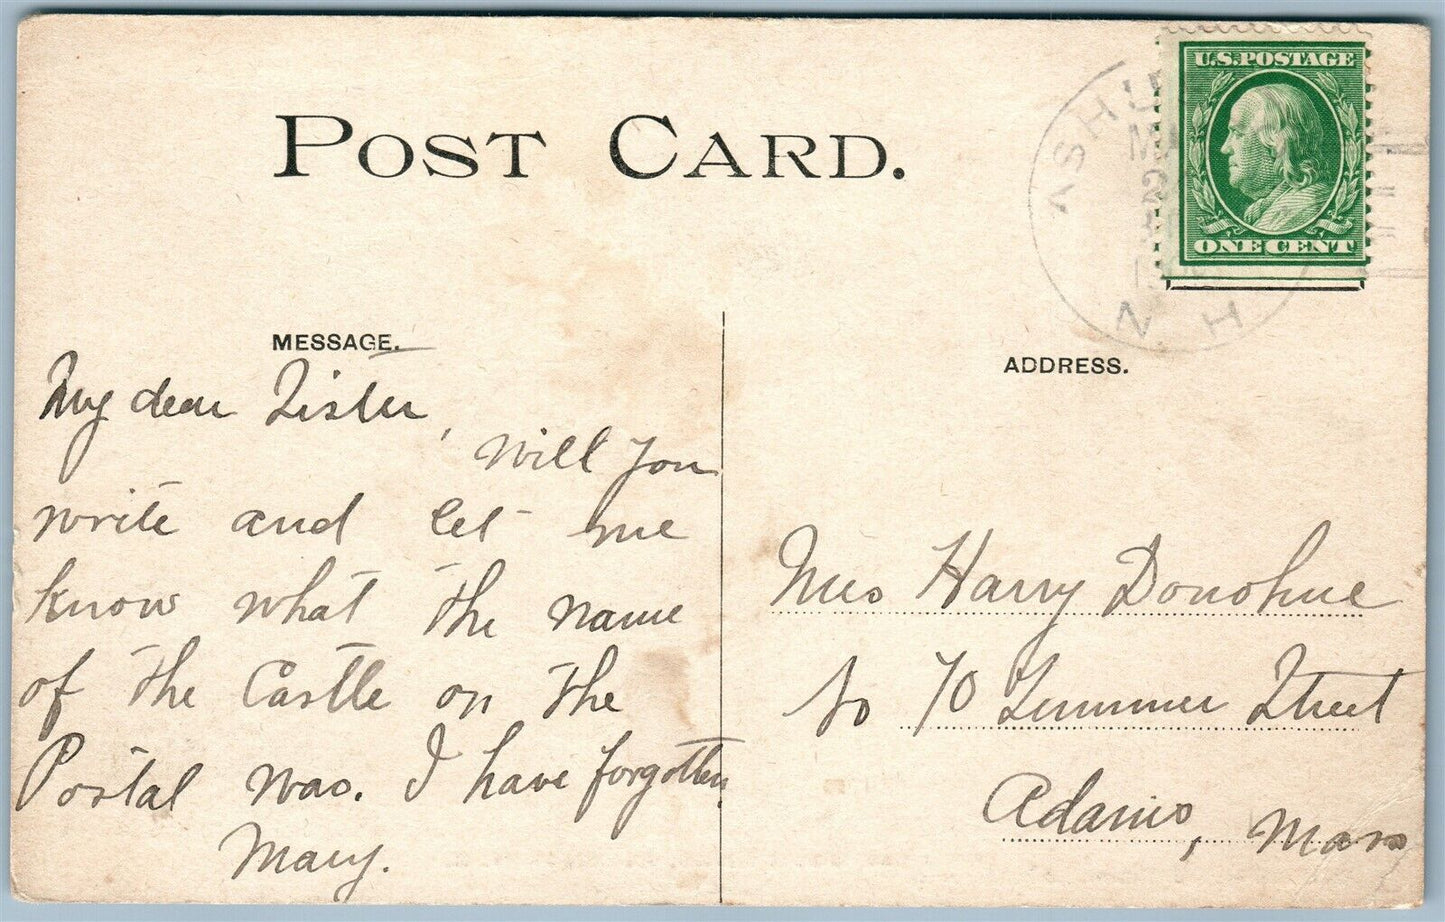 POST CARD.
U.S. POSTAGE
ONE CENT
ASHU
N. H
MESSAGE.
My dear Sister,
Will you
write and let me
know what the name
of the Castle on the
Postal was. I have forgotten
Mary.
ADDRESS.
Mrs Harry Donohue
No 70 Summer Street
Adams, Mass